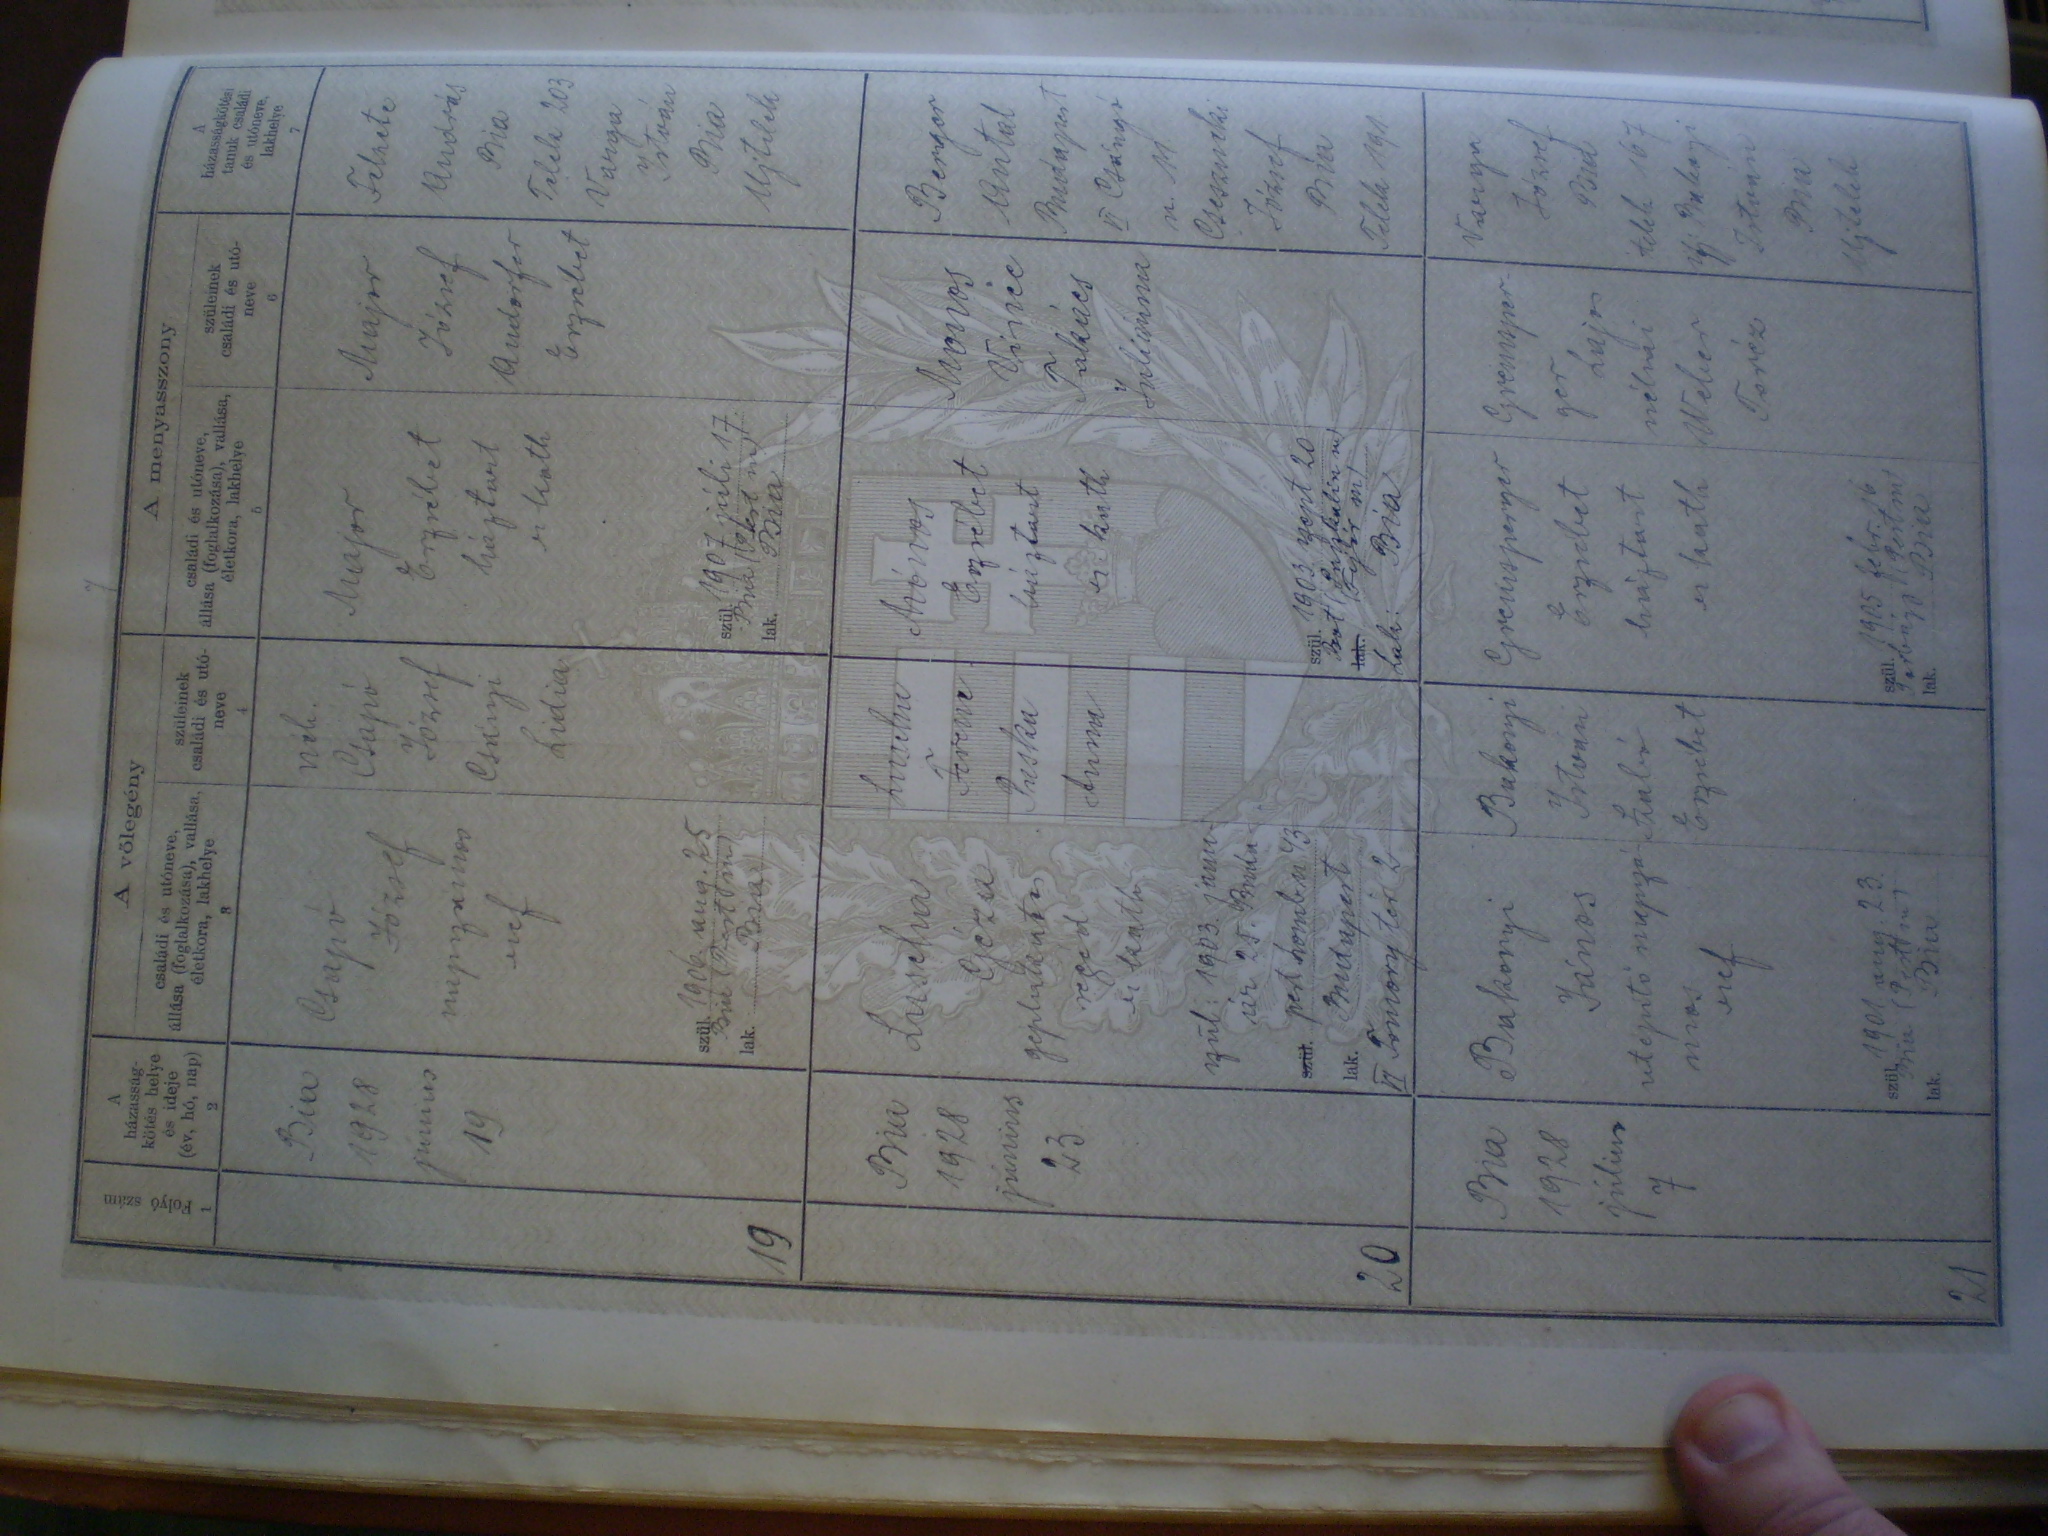 A vőlegény
A menyasszony
Folyó
szám
1
A
házasság-
kötés helye
és ideje
(év, hó, nap)
2
családi és utóneve,
állása (foglalkozása), vallása,
életkora, lakhelye
3
szüleinek
családi és utó-
neve
4
családi és utóneve,
állása (foglalkozása), vallása,
életkora, lakhelye
5
szüleinek
családi és utó-
neve
6
A
házasságkötési
tanuk családi
és utóneve,
lakhelye
7
19
Bia
1928
június
19
Csapó
József
napszamos
ref
szül. 1906 aug. 25
Bia (Pest vm)
lak. Bia
néh.
Csapó
József
Csányi
Lidia
Major
Erzsébet
háztart
r kath
szül. 1907 júli 17
Bia (Pest vm)
lak. Bia
Major
József
Andorfer
Erzsebet
Fekete
András
Bia
Telek 203
Varga
István
Bia
Ujtelek
20
Bia
1928
június
23
Géza
r kath
szül: 1903 janu-
ár 25. Buda-
szül.
lak. Budapest
VI tér 2
Ferenc
Puska
Anna
Mónos
Erzsébet
háztart
r kath
szül. 1903 szept 20
(Fejér m)
lak.
Lak: Bia
Monos
Vince
Takács
Juliánna
Berger
Antal
Budapest
VI Csángó
u. 11
József
Bia
Telek 191
21
Bia
1928
július
7
Bakonyi
János
utépitő napszá-
mos
ref
szül. 1901 aug 23.
Bia (Pest vm)
lak. Bia
Bakonyi
István
Szabó
Erzsébet
Grensperger
Erzsébet
háztart
r kath
szül. 1905 febr 16
Torbágy (Pest vm)
lak. Bia
Grensper-
ger
Lajos
Weber
Teréz
Varga
József
Bia
telek 167
Ifj Bakonyi
István
Bia
Ujtelek